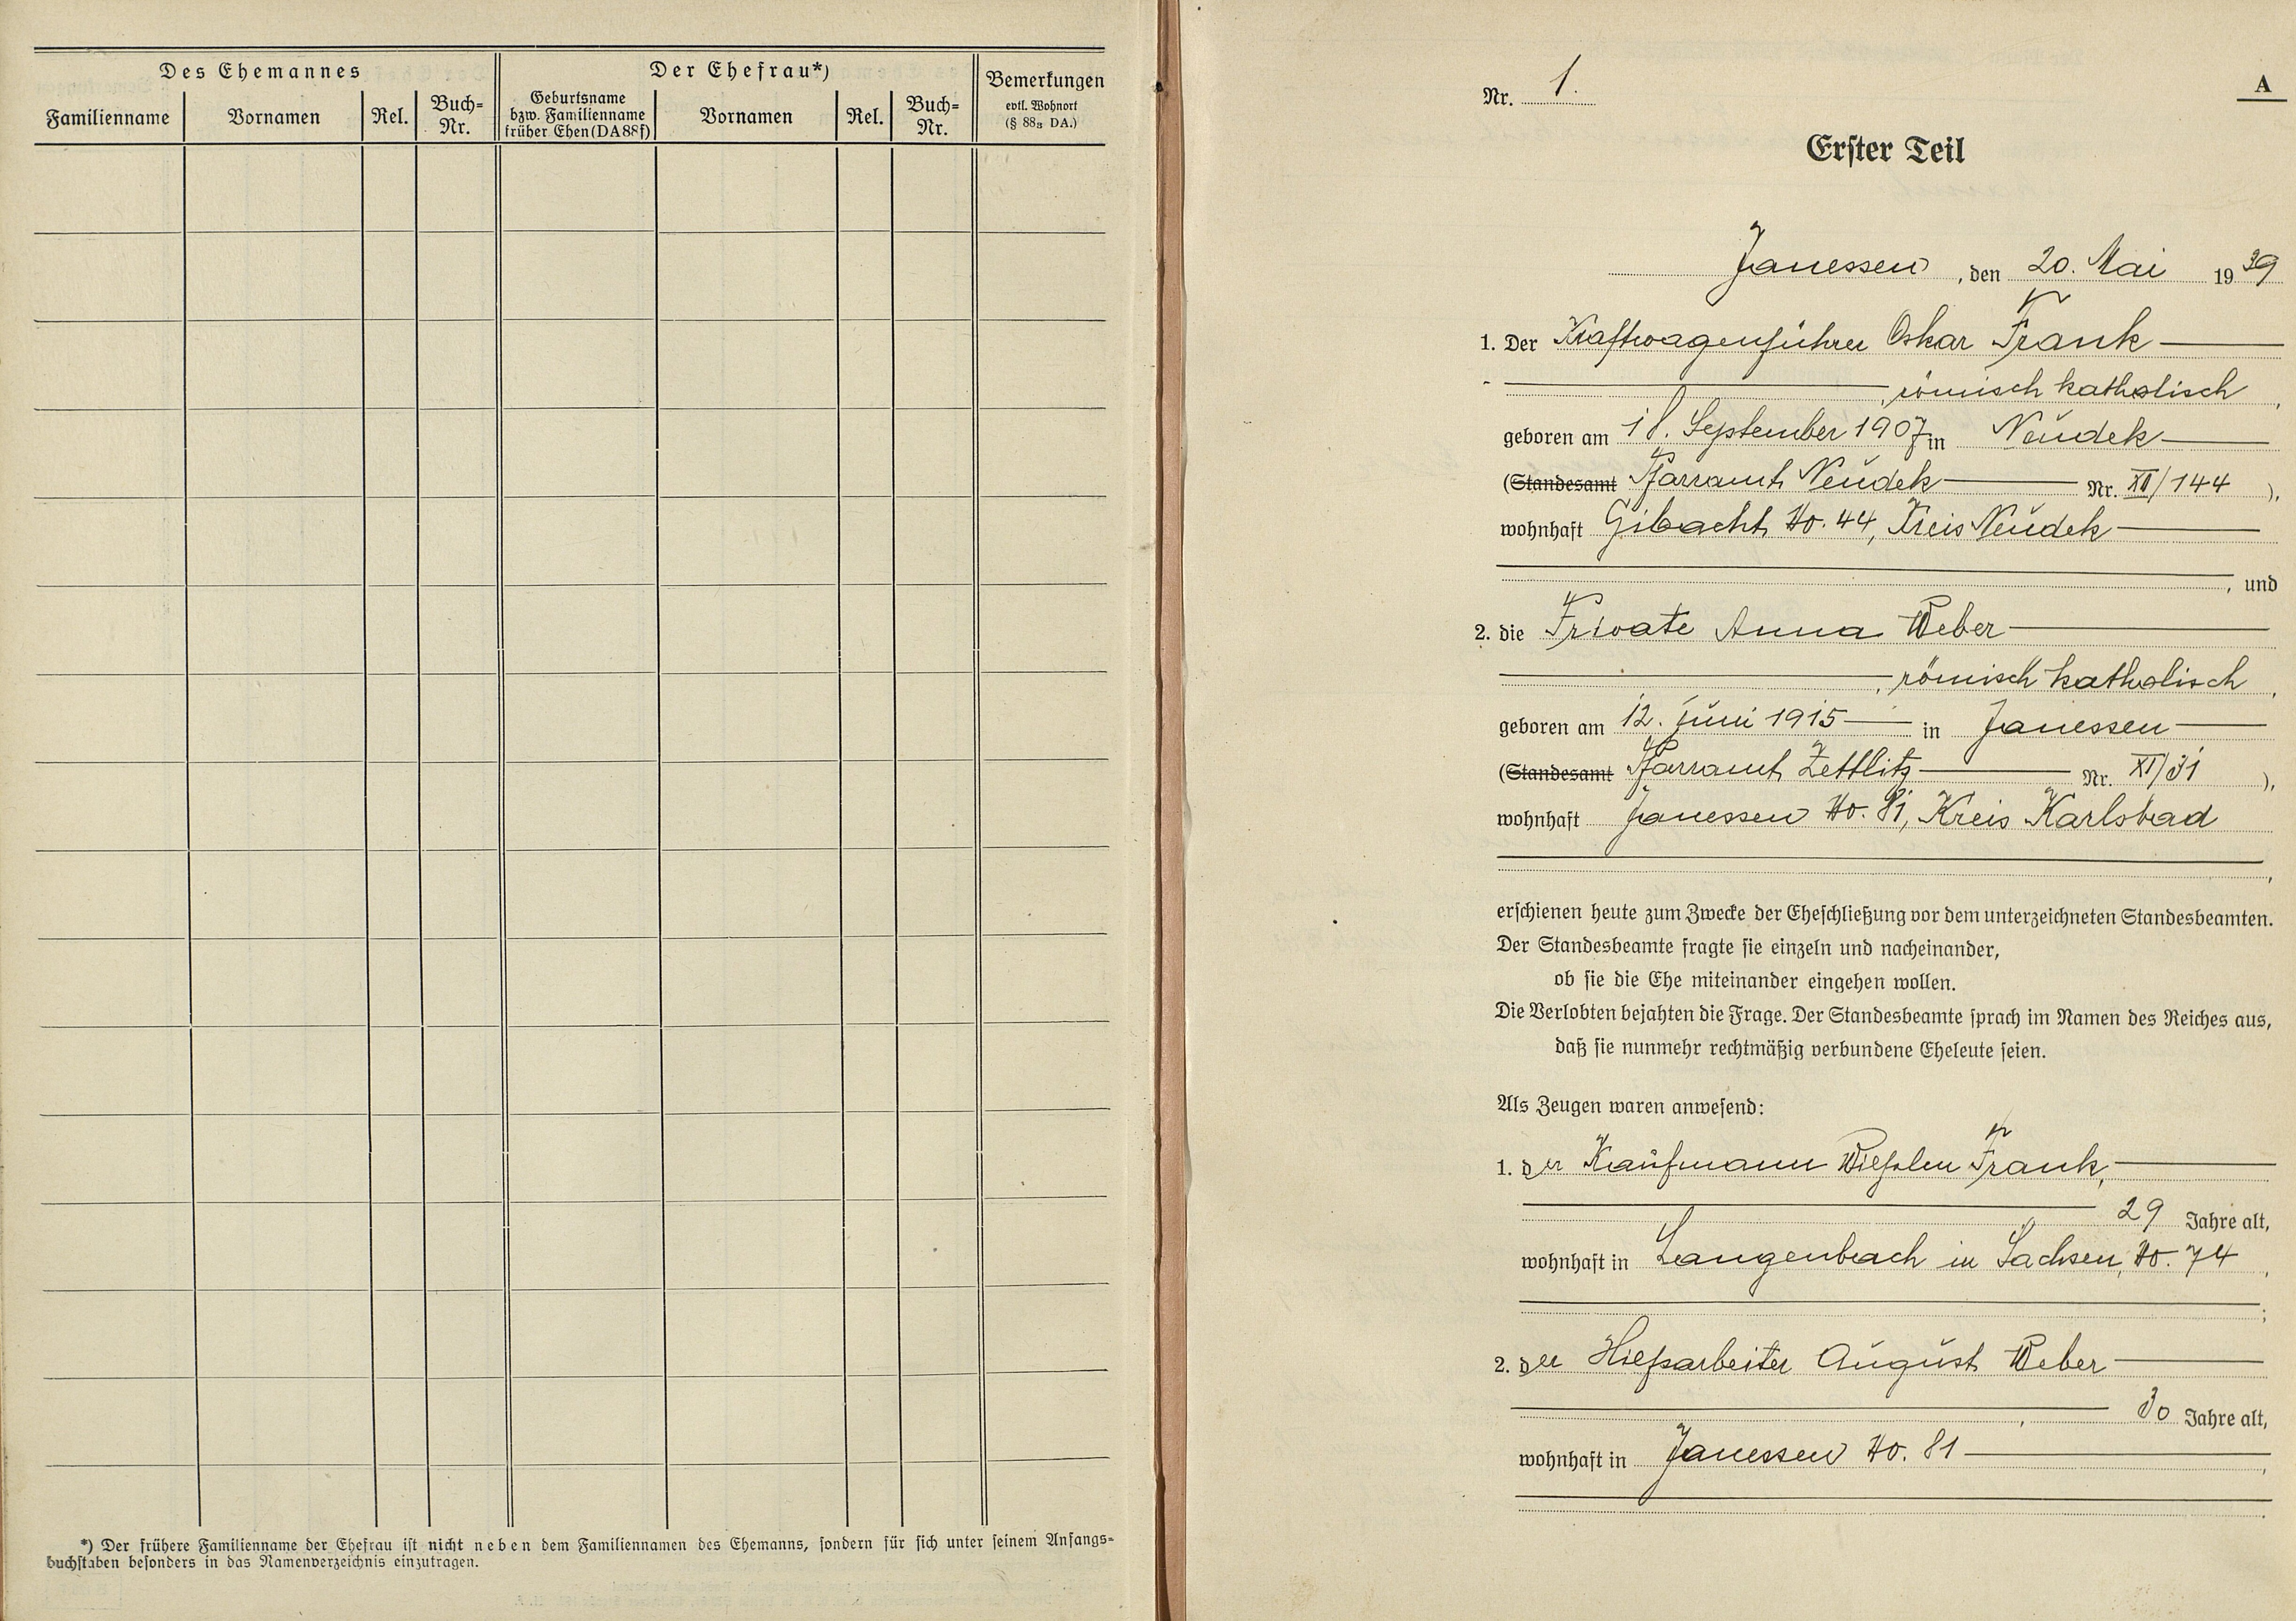 Des Ehemannes
Der Ehefrau*)
Bemerkungen
evtl. Wohnort
(§ 88₃ DA.)
Familienname
Vornamen
Rel.
Buch=
Nr.
Geburtsname
bzw. Familienname
früher Ehen (DA 88 f)
Vornamen
Rel.
Buch=
Nr.
*) Der frühere Familienname der Ehefrau ist nicht neben dem Familiennamen des Ehemanns, sondern für sich unter seinem Anfangs=
buchstaben besonders in das Namenverzeichnis einzutragen.
A
Nr. 1.
Erster Teil
Janessen, den 20. Mai 1939
1. Der Kraftwagenführer Oskar Frank
, römisch katholisch,
geboren am 18. September 1907 in Neudek
(Standesamt Pfarramt Neudek Nr. XII/144),
wohnhaft Gibacht No. 44, Kreis Neudek
, und
2. die Private Anna Weber
, römisch katholisch,
geboren am 12. Juni 1915 in Janessen
(Standesamt Pfarramt Zettlitz Nr. XI/31),
wohnhaft Janessen No. 81, Kreis Karlsbad
,
erschienen heute zum Zwecke der Eheschließung vor dem unterzeichneten Standesbeamten.
Der Standesbeamte fragte sie einzeln und nacheinander,
ob sie die Ehe miteinander eingehen wollen.
Die Verlobten bejahten die Frage. Der Standesbeamte sprach im Namen des Reiches aus,
daß sie nunmehr rechtmäßig verbundene Eheleute seien.
Als Zeugen waren anwesend:
1. der Kaufmann Frank,
29 Jahre alt,
wohnhaft in Langenbach in Sachsen, No. 74,
;
2. der Hilfsarbeiter August Weber
, 30 Jahre alt,
wohnhaft in Janessen No. 81,
.